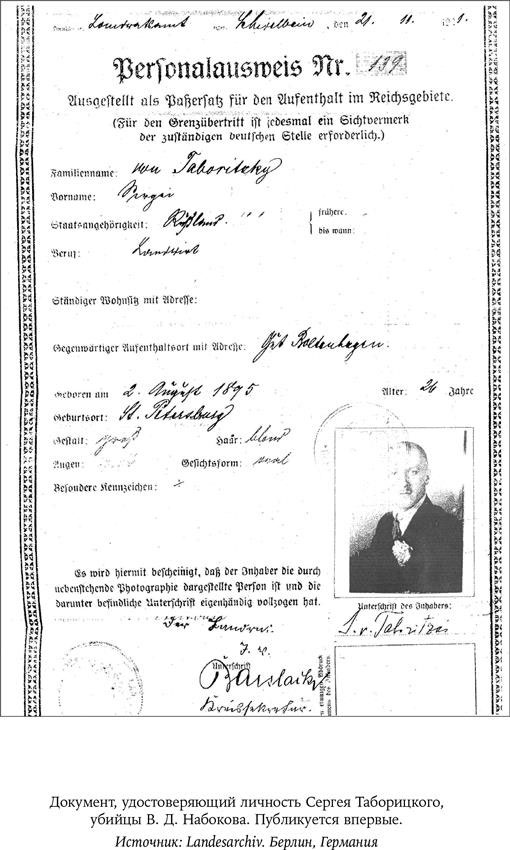 Landratsamt Schivelbein, den 21. 11. 1921.
Personalausweis Nr. 139
Ausgestellt als Paßersatz für den Aufenthalt im Reichsgebiete.
(Für den Grenzübertritt ist jedesmal ein Sichtvermerk
der zuständigen deutschen Stelle erforderlich.)
Familienname: von Taboritzky
Vorname: Sergei
Staatsangehörigkeit: Rußland. frühere:
bis wann:
Beruf: Landwirt
Ständiger Wohnsitz mit Adresse:
Gegenwärtiger Aufenthaltsort mit Adresse: Gut Boltenhagen.
Geboren am 2. August 1895 Alter: 26 Jahre
Geburtsort: St. Petersburg
Gestalt: groß Haar: blond
Augen: Gesichtsform: oval
Besondere Kennzeichen:
Es wird hiermit bescheinigt, daß der Inhaber die durch
nebenstehende Photographie dargestellte Person ist und die
darunter befindliche Unterschrift eigenhändig vollzogen hat.
Unterschrift des Inhabers:
Der Landrat
J. V.
Unterschrift
Kreissekretär.
Документ, удостоверяющий личность Сергея Таборицкого,
убийцы В. Д. Набокова. Публикуется впервые.
Источник: Landesarchiv. Берлин, Германия